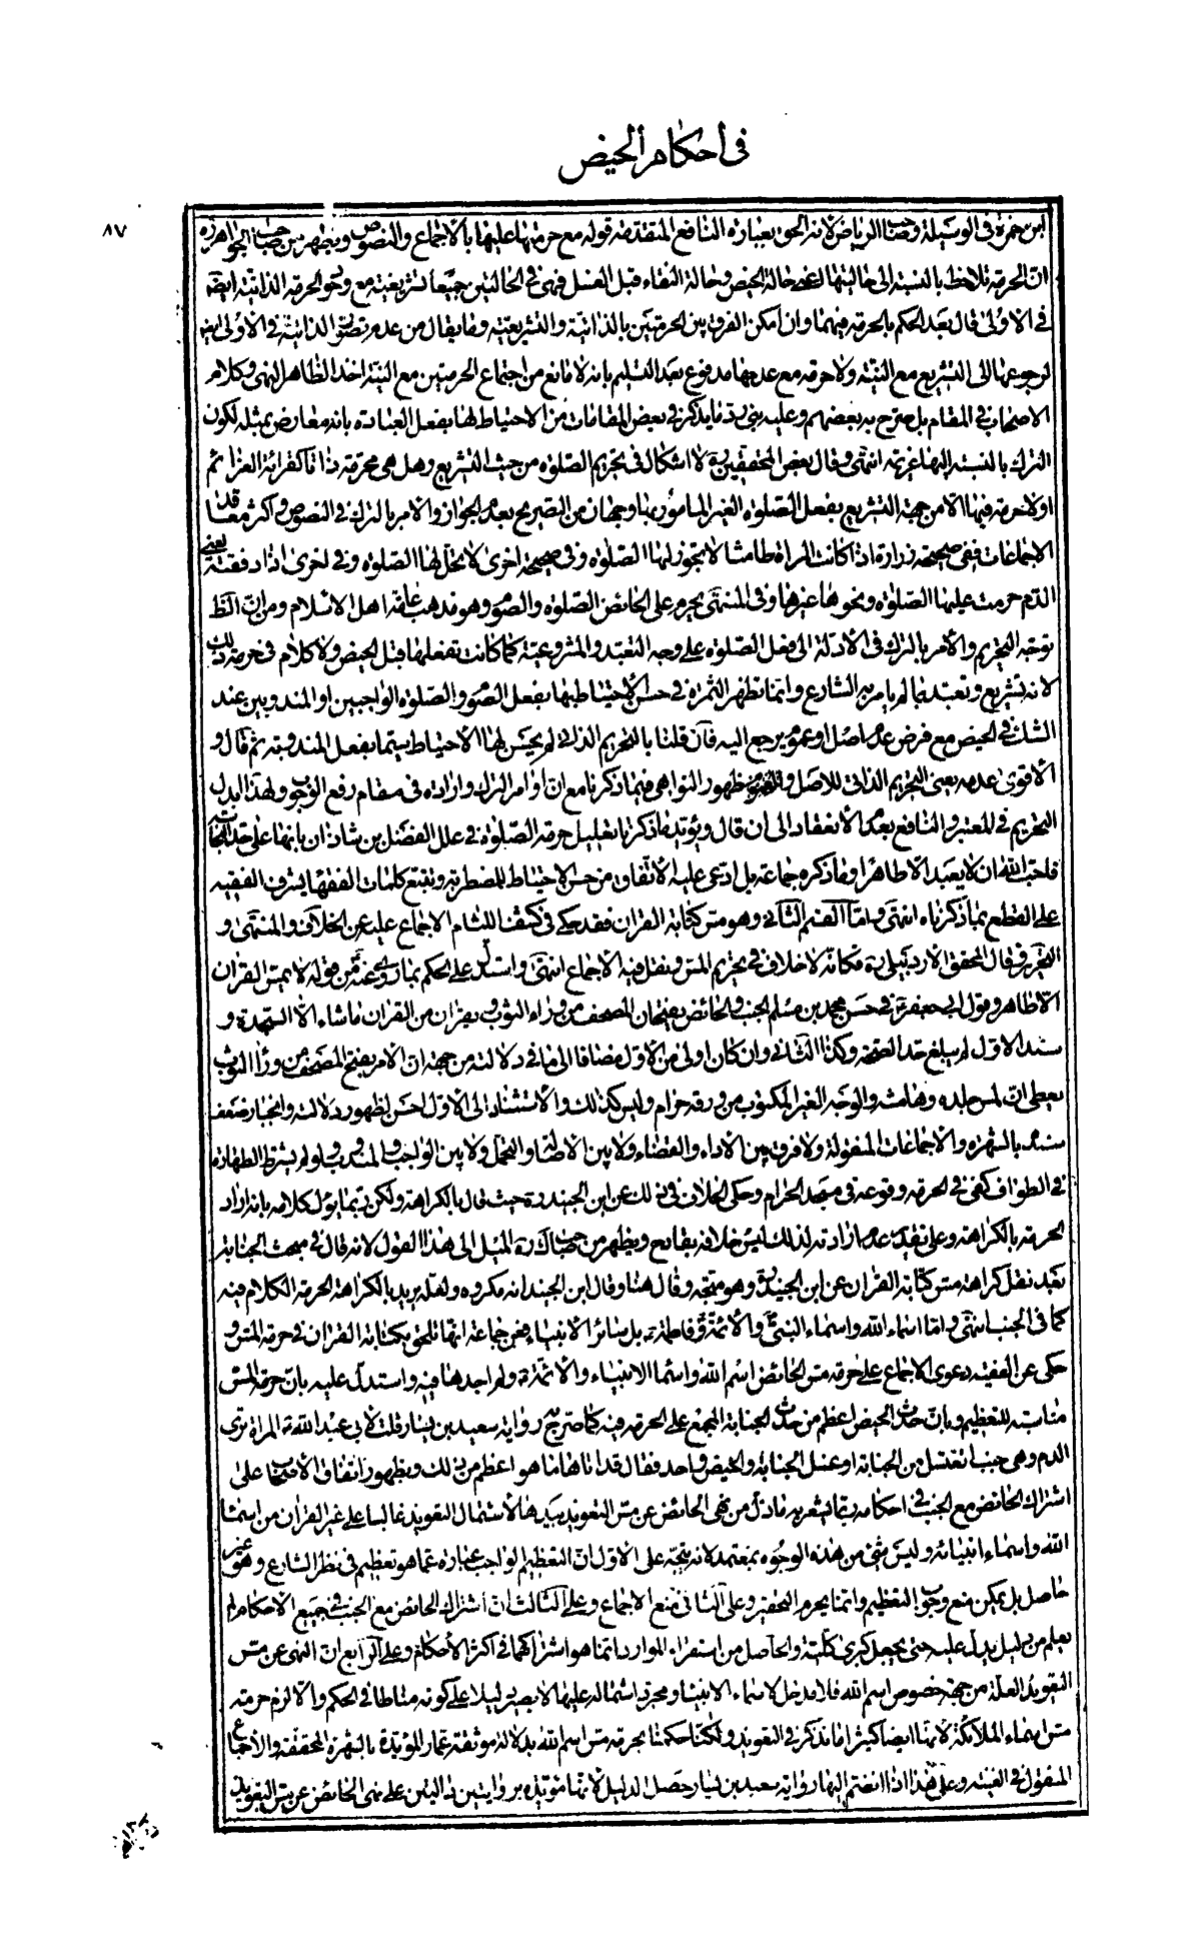 في أحكام الحيض
٨٧
ابن حمزة في الوسيلة وصاحب الرياض لانه الحق بعبارة النافع المتقدمة قوله مع حرمتها عليها بالاجماع والنصوص ويظهر من صاحب الجواهر ره
ان الحرمة تلاحظ بالنسبة الى حالتيها اعني حالة الحيض وحالة النقاء قبل الغسل فهي في الحالتين جميعا تشريعية مع وجود الحرمة الذاتية ايضا
في الاولى قال بعد الحكم بالحرمة فيهما وان امكن الفرق بين الحرمتين بالذاتية والتشريعية وما يقال من عدم تصور الذاتية في الاولى ايضا
لرجوعها الى التشريع مع النية ولا حرمة مع عدمها مدفوع بعد التسليم بانه لا مانع من اجتماع الحرمتين مع النية اخذا لظاهر النهي وكلام
الاصحاب في المقام بل صرح به بعضهم وعليه يبنى رد ما يذكر في بعض المقامات من الاحتياط لها بفعل العبادة بانه معارض بمثله لكون
الترك بالنسبة اليها عزيمة انتهى وقال بعض المحققين ره لا اشكال في تحريم الصلوة من حيث التشريع وهل هي محرمة ذاتا كقرائة العزائم
او لا حرمة فيها الا من جهة التشريع بفعل الصلوة الغير المامور بها وجهان من التصريح بعدم الجواز والامر بالترك في النصوص واكثر معاقد
الاجماعات ففي صحيحة زرارة اذا كانت المراة طامثا لا تجوز لها الصلوة وفي صحيحة اخرى لا يحل لها الصلوة وفي اخرى اذا دفقته يعني
الدم حرمت عليها الصلوة ونحوها غيرها وفي المنتهى يحرم على الحائض الصلوة والصوم وهو مذهب عامة اهل الاسلام ومن ان الظ
توجه التحريم والامر بالترك في الادلة الى فعل الصلوة على وجه التعبد والمشروعية كما كانت تفعلها قبل الحيض ولا كلام في حرمة ذلك
لانه تشريع وتعبد بما لم يامر به الشارع وانما تظهر الثمرة في حسن الاحتياط بها بفعل الصوم والصلوة الواجبين او المندوبين عند
الشك في الحيض مع فرض عدم اصل او عموم يرجع اليه فان قلنا بالتحريم الذاتي لم يحسن لها الاحتياط سيما بفعل المندوبة ثم قال و
الاقوى عدمه يعني التحريم الذاتي للاصل و ظهور النواهي فيما ذكرنا مع ان اوامر الترك واردة في مقام رفع الوجوب ولهذا ابدل
التحريم في المعتبر والنافع بعدم الانعقاد الى ان قال ويؤيد ما ذكرنا تعليل حرمة الصلوة في علل الفضل بن شاذان بانها على حد النجاسة
فاحب الله ان لا يعبد الا طاهرا وما ذكره جماعة بل ادعى عليه الاتفاق من حسن الاحتياط للمضطربة وتتبع كلمات الفقهاء يشرف الفقيه
على القطع بما ذكرناه انتهى واما القسم الثاني وهو مس كتابة القران فقد حكى في كشف اللثام الاجماع عليه عن الخلاف والمنتهى و
التحرير وقال المحقق الاردبيلي ره فكانه لا خلاف في تحريم المس ونقل فيه الاجماع انتهى واستدل على الحكم بما روي عنه من قوله لا يمس القران
الا طاهر وقول ابي جعفر في حسن محمد بن مسلم الجنب والحائض يفتحان المصحف من وراء الثوب ويقران من القران ما شاء الا السجدة و
سند الاول لم يبلغ حد الصحة وكذا الثاني وان كان اولى من الاول مضافا الى ما في دلالته من جهة ان الامر بفتح المصحف من وراء الثوب
يعطي ان لمس جلده وهامشه والوجه الغير المكتوب من ورقه حرام وليس كذلك والاستناد الى الاول حسن لظهور دلالته وانجبار ضعف
سنده بالشهرة والاجماعات المنقولة ولا فرق بين الاداء والقضاء ولا بين الاصلي والتحمل ولا بين الواجب والمندوب ولو لم يشترط الطهارة
في الطواف كفى في الحرمة وقوعه في مسجد الحرام وحكى الخلاف في ذلك عن ابن الجنيد ره حيث قال بالكراهة ولكن ربما يؤل كلامه بانه اراد
الحرمة بالكراهة وعلى تقدير عدم ارادته لذلك ليس خلافه بقادح ويظهر من صاحب ك ره الميل الى هذا القول لانه قال في مبحث الجنابة
بعد نقل كراهة مس كتابة القران عن ابن الجنيد ره وهو متجه وقال هنا وقال ابن الجنيد انه مكروه ولعله يريد بالكراهة الحرمة الكلام فيه
كما في الجنب انتهى واما اسماء الله واسماء النبي ص والائمة ع وفاطمة ع بل سائر الانبياء ع فعن جماعة انها تلحق بكتابة القران في حرمة المس و
حكى عن الغنية دعوى الاجماع على حرمة مس الحائض اسم الله واسماء الانبياء والائمة ع ولم اجدها فيه واستدل عليه بان حرمة المس
مناسبة للتعظيم وبان حدث الحيض اعظم من حدث الجنابة المجمع على الحرمة فيه كما صرح به رواية سعيد بن يسار قلت لابي عبد الله ع المراة ترى
الدم وهي جنب اتغتسل من الجنابة او غسل الجنابة والحيض واحد فقال قد اتاها ما هو اعظم من ذلك وبظهور اتفاق الاصحاب على
اشتراك الحائض مع الجنب في احكامه ربما يشعر به ما دل من نهي الحائض عن مس التعويذ بيدها لاشتمال التعويذ غالبا على غير القران من اسماء
الله واسماء انبيائه وليس شئ من هذه الوجوه بمعتمد لانه يتجه على الاول ان التعظيم الواجب عبارة عما هو تعظيم في نظر الشارع وهو غير
حاصل بل يمكن منع وجوب التعظيم وانما يحرم التحقير وعلى الثاني منع الاجماع وعلى الثالث ان اشتراك الحائض مع الجنب في جميع الاحكام لم
يعلم من دليل يدل عليه حتى يجعل كبرى كلية والحاصل من استقراء الموارد انما هو اشتراكهما في اكثر الاحكام وعلى الرابع ان النهي عن مس
التعويذ لعله من جهة خصوص اسم الله فلا مدخل لاسماء الانبياء ومجرد اشتماله عليها لا يصير دليلا على كونه مناطا في الحكم والا لزم حرمة
مس اسماء الملائكة لانها ايضا كثيرا ما تذكر في التعويذ ولكنا حكمنا بحرمة مس اسم الله بدلالة موثقة عمار المؤيدة بالشهرة المحققة والاجماع
المنقول في الغنية وعلى هذا اذا انضم اليها رواية سعيد بن يسار حصل الدليل لانها مؤيدة بروايتين دالتين على نهي الحائض عن مس التعويذ